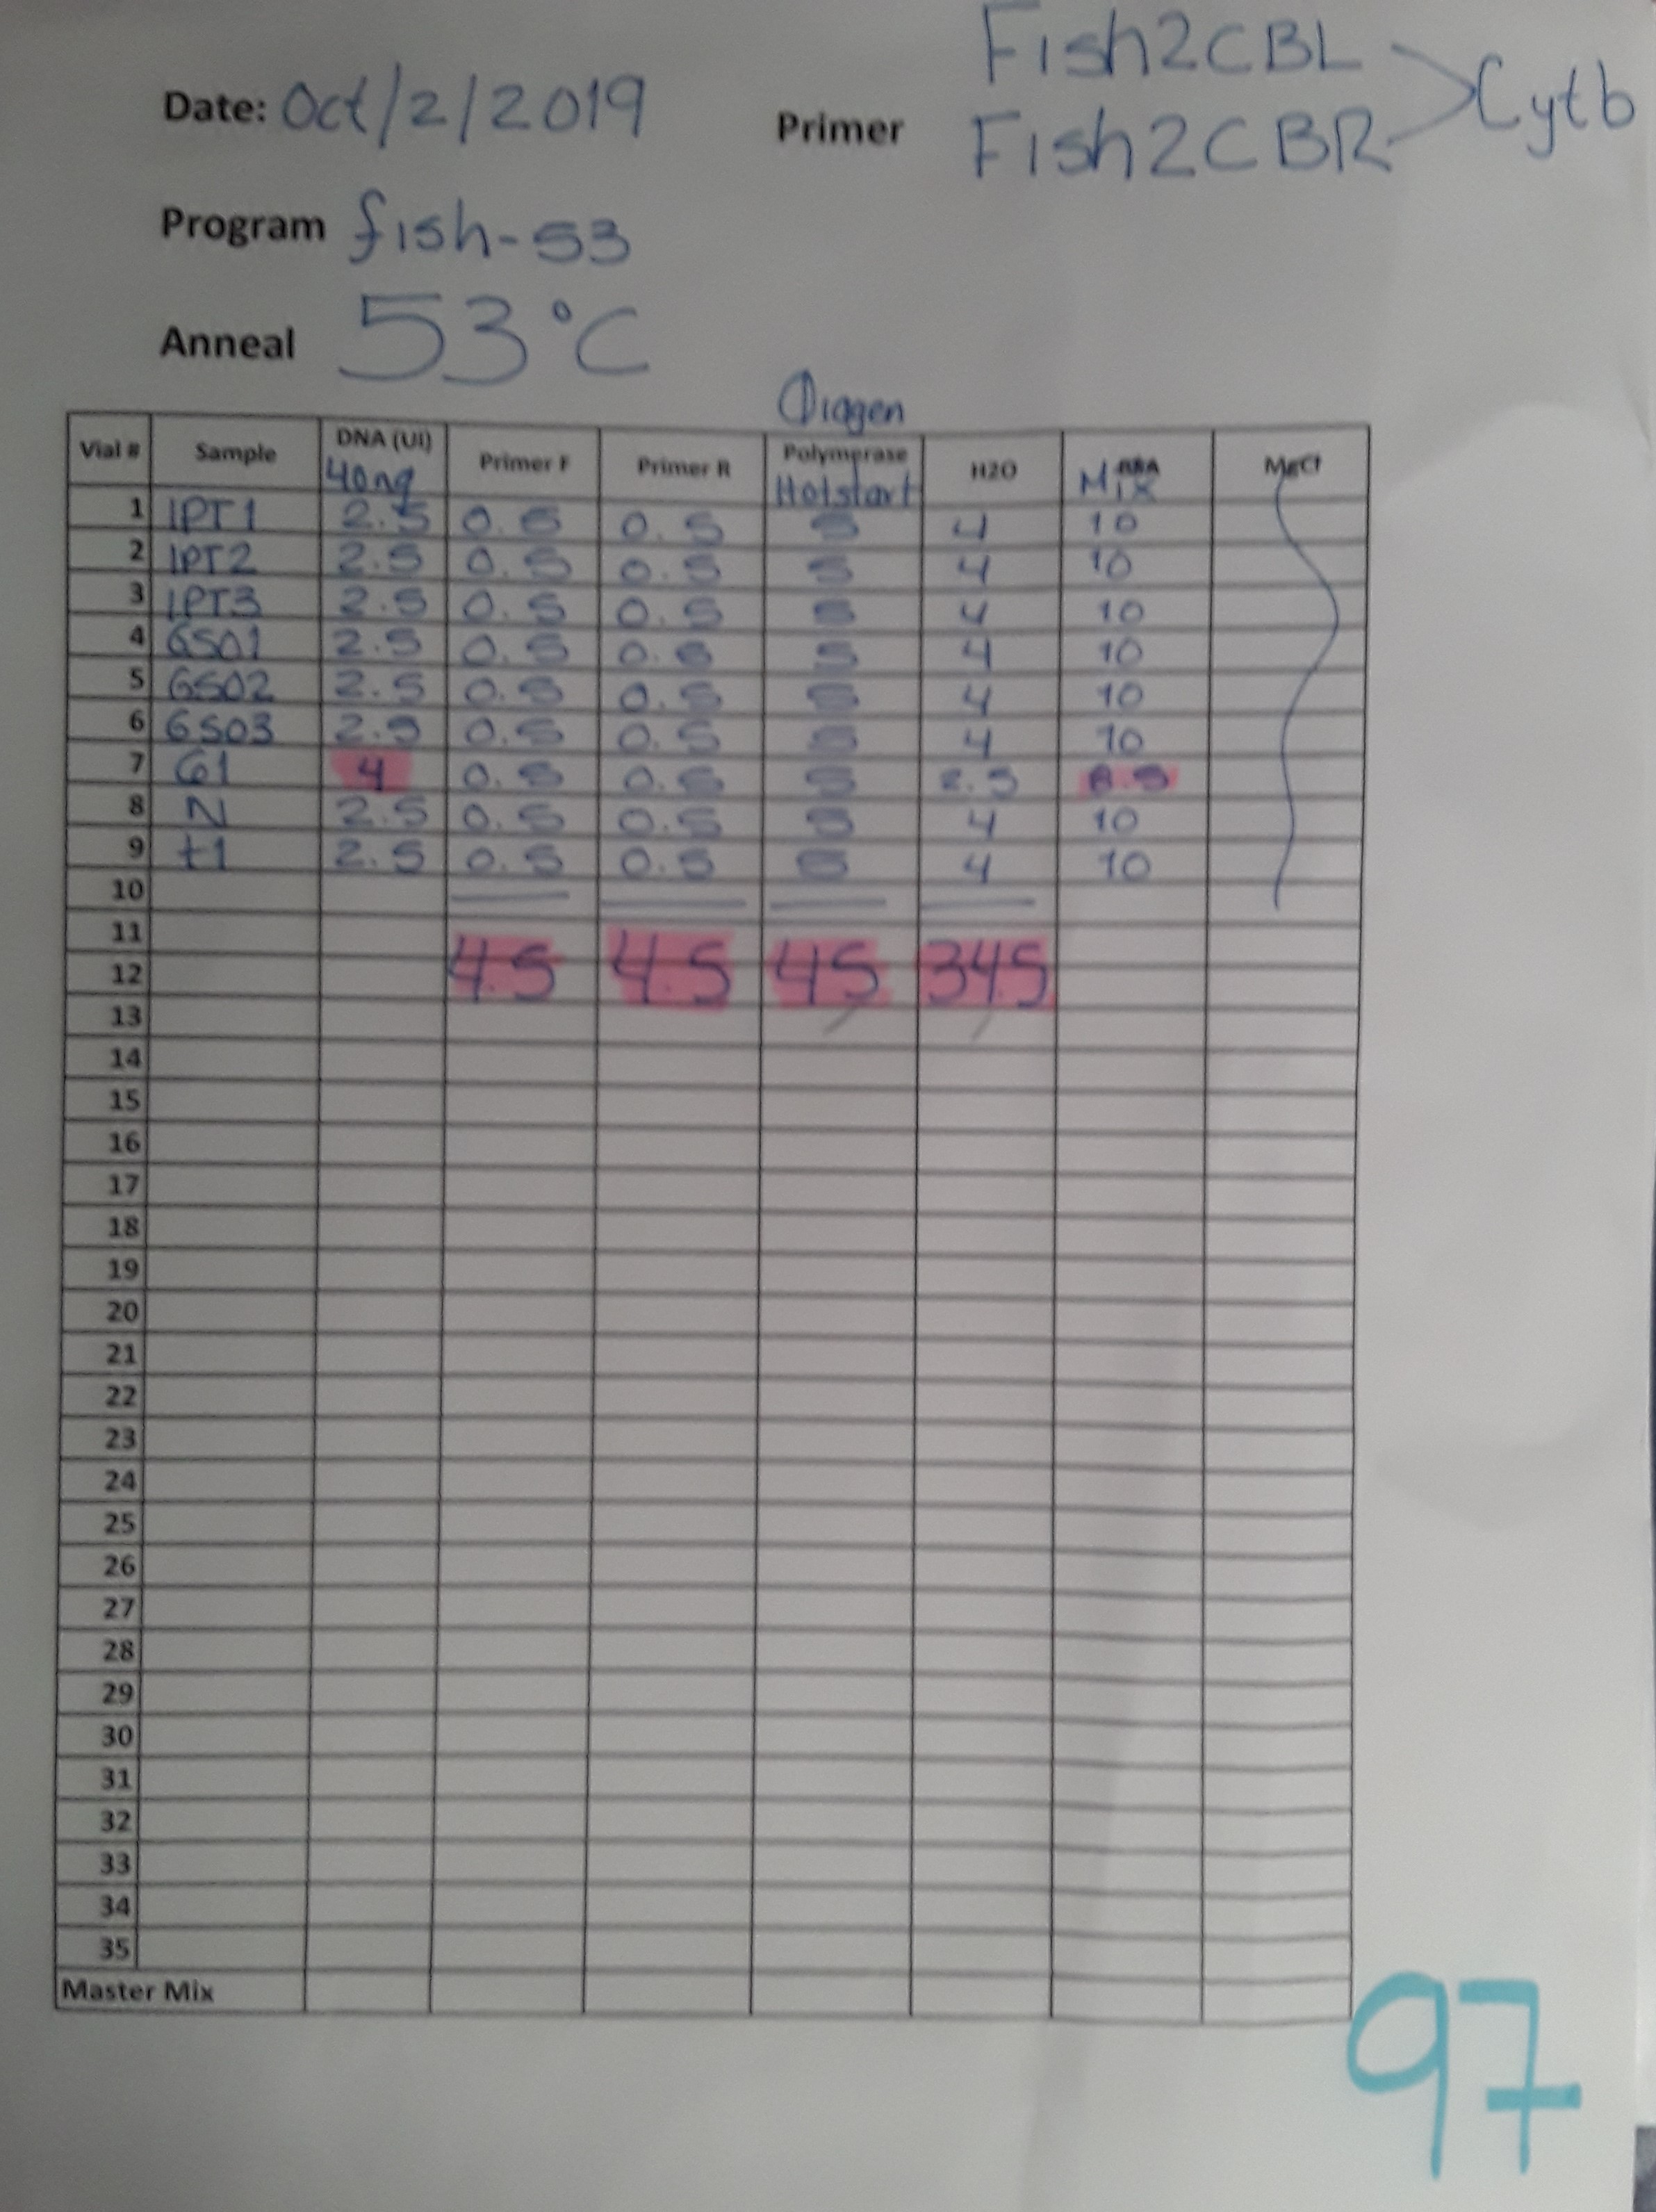 Fish2CBL
Date: Oct/2/2019 Primer Fish2CBR Cytb
Program fish-53
Anneal 53°C
Qiagen
Vial # Sample DNA (Ul) Primer F Primer R Polymerase H2O Mix MgCl
40ng Hotstart
1 IPT1 2.5 0.5 0.5 5 4 10
2 IPT2 2.5 0.5 0.5 5 4 10
3 IPT3 2.5 0.5 0.5 5 4 10
4 GS01 2.5 0.5 0.5 5 4 10
5 GS02 2.5 0.5 0.5 5 4 10
6 GS03 2.5 0.5 0.5 5 4 10
7 G1 4 0.5 0.5 5 2.5 8.5
8 N 2.5 0.5 0.5 5 4 10
9 t1 2.5 0.5 0.5 5 4 10
10
11
12 4.5 4.5 45 34.5
13
14
15
16
17
18
19
20
21
22
23
24
25
26
27
28
29
30
31
32
33
34
35
Master Mix
97